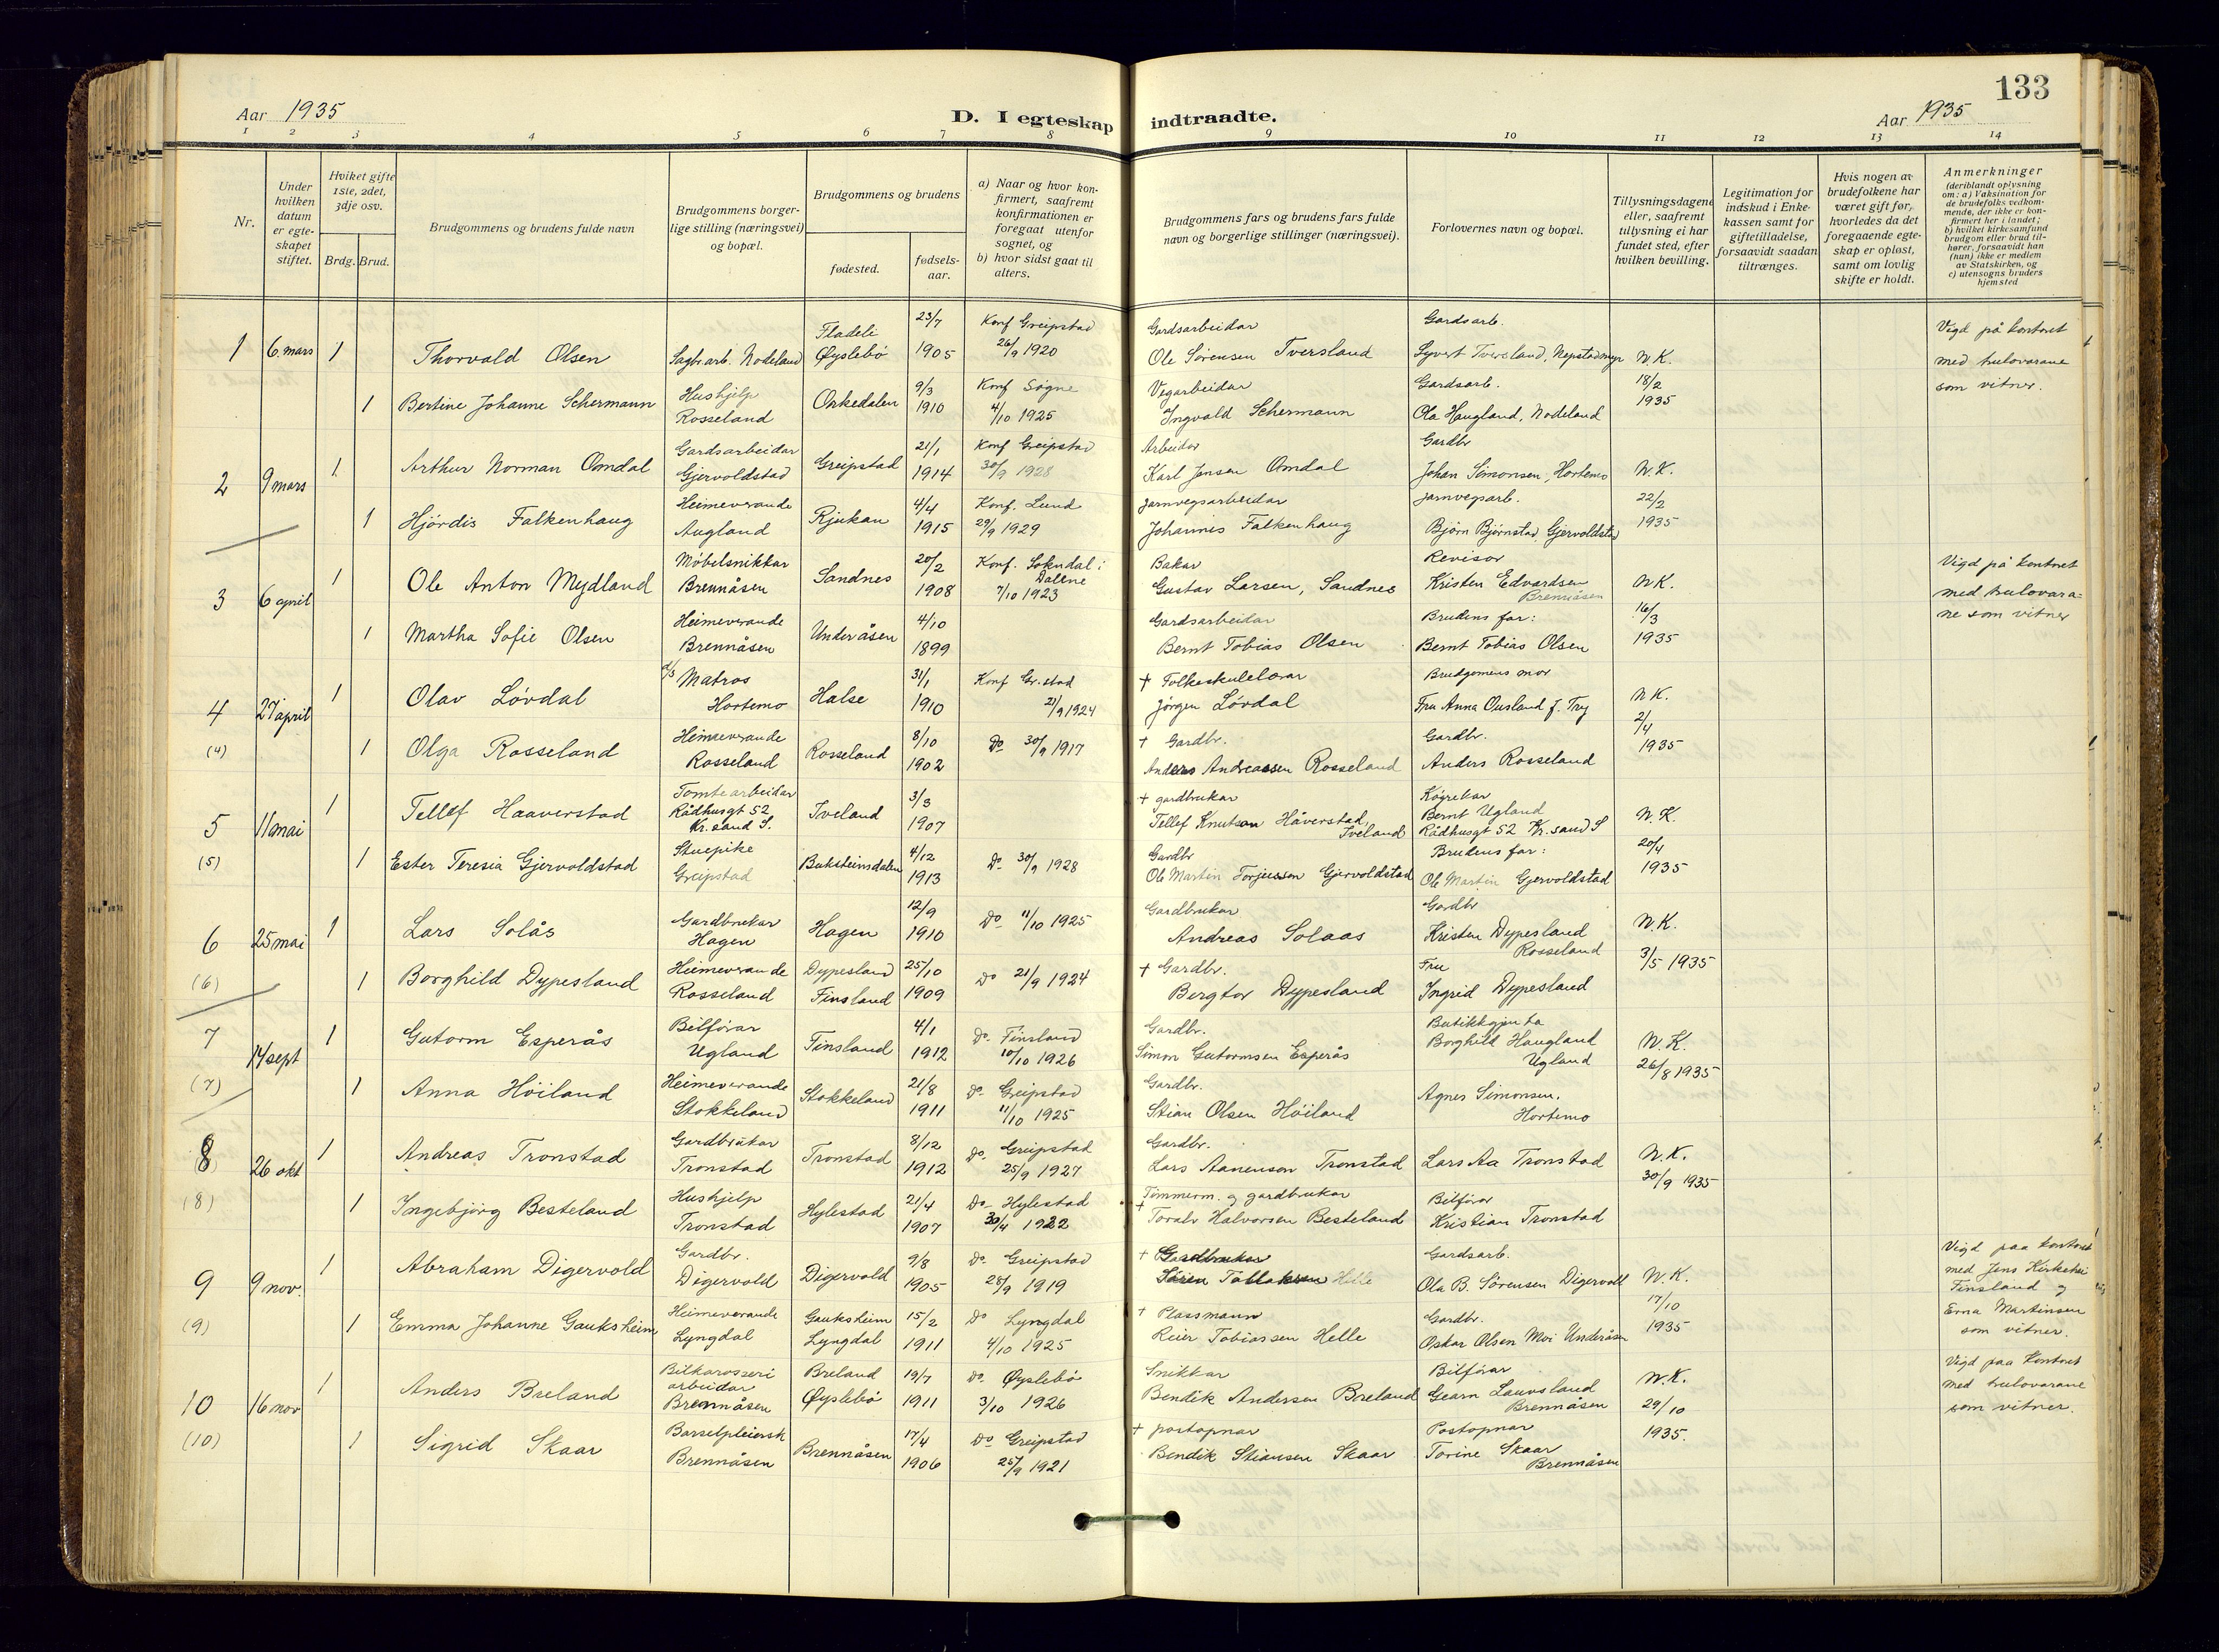 133
Aar 1935
D. I egteskap indtraadte.
Aar 1935
1 2 3 4 5 6 7 8 9 10 11 12 13 14
Nr.
Under hvilken datum er egte-skapet stiftet.
Hvilket gifte 1ste, 2det, 3dje osv.
Brdg. Brud.
Brudgommens og brudens fulde navn
Brudgommens borger-lige stilling (næringsvei) og bopæl.
Brudgommens og brudens
fødested.
fødsels-aar.
a) Naar og hvor kon-firmert, saafremt konfirmationen er foregaat utenfor sognet, og
b) hvor sidst gaat til alters.
Brudgommens fars og brudens fars fulde navn og borgerlige stillinger (næringsvei).
Forlovernes navn og bopæl.
Tillysningsdagene eller, saafremt tillysning ei har fundet sted, efter hvilken bevilling.
Legitimation for indskud i Enke-kassen samt for giftetilladelse, forsaavidt saadan tiltrænges.
Hvis nogen av brudefolkene har været gift før, hvorledes da det foregaaende egte-skap er opløst, samt om lovlig skifte er holdt.
Anmerkninger
(deriblandt oplysning om: a) Vaksination for de brudefolks vedkom-mende, der ikke er kon-firmert her i landet; b) hvilket kirkesamfund brudgom eller brud til-hører, forsaavidt han (hun) ikke er medlem av Statskirken, og c) utensogns bruders hjemsted
1 6. mars 1 Thorvald Olsen Sagbr.arb. Nodeland Fladeli Øyslebö 23/7 1905 Konf Greipstad 26/9 1920 Gardsarbeidar Ole Sörensen Tversland Gardsarb. Syvert Tversland, Nepstadmyr N.K. 18/2 1935 Vigd på kontoret med trulovarane som vitner.
1 Bertine Johanne Schermann Hushjelp Rosseland Orkedalen 9/3 1910 Konf Sögne 4/10 1925 Vegarbeidar Ingvald Schermann Gardsarb. Ola Haugland, Nodeland
2 9 mars 1 Arthur Norman Omdal Gardsarbeidar Gjervoldstad Greipstad 21/1 1914 Konf Greipstad 30/9 1928 Arbeidar Karl Jensen Omdal Gardbr Johan Simonsen, Hortemo N.K. 22/2 1935
1 Hjördis Falkenhaug Heimeverande Augland Rjukan 4/4 1915 Konf. Lund 29/9 1929 Jarnvegsarbeidar Johannes Falkenhaug Jarnvegsarb. Bjørn Bjørnstad, Gjervoldstad
3 6 april 1 Ole Anton Mydland Möbelsnikkar Brennåsen Sandnes 20/2 1908 Konf. Sokndal i Dalene 7/10 1923 Bakar Gustav Larsen, Sandnes Revisor Kristen Edvardsen Brennåsen N.K. 16/3 1935 Vigd på kontoret med trulovara= ne som vitner
1 Martha Sofie Olsen Heimeverande Brennåsen Underåsen 4/10 1899 Gardsarbeidar Bernt Tobias Olsen Brudens far: Bernt Tobias Olsen
4 27 april 1 Olav Lövdal Matros Hortemo Halse 31/1 1910 Konf Gr.stad 21/9 1924 + Folkeskulelærar Jörgen Lövdal Brudgomens mor Fru Anna Ousland f. Try N.K. 2/4 1935
(4) 1 Olga Rosseland Heimeverande Rosseland Rosseland 8/10 1902 Do 30/9 1917 + Gardbr. Anders Andreassen Rosseland Gardbr. Anders Rosseland
5 11 mai 1 Tellef Haaverstad Tomtearbeidar Rådhusgt 52 Kr.sand S. Iveland 3/3 1907 + gardbrukar Tellef Knutson Håverstad, Iveland Köyrekar Bernt Ugland Rådhusgt 52 Kr.sand S N.K. 20/4 1935
(5) 1 Ester Teresia Gjervoldstad Stuepike Greipstad Buksteinsdalen 4/12 1913 Do 30/9 1928 Gardbr Ole Martin Torjussen Gjervoldstad Brudens far: Ole Martin Gjervoldstad
6 25 mai 1 Lars Solås Gardbrukar Hagen Hagen 12/9 1910 Do 11/10 1925 Gardbrukar Andreas Solaas Gardbr Kristen Dypesland Rosseland N.K. 3/5 1935
(6) 1 Borghild Dypesland Heimeverande Rosseland Dypesland Finsland 25/10 1909 Do 21/9 1924 + Gardbr. Bergtor Dypesland Fru Ingrid Dypesland
7 14 sept 1 Gutorm Esperås Bilförar Ugland Finsland 4/1 1912 Do. Finsland 10/10 1926 Gardbr. Simon Gutormsen Esperås Butikkgjenta Borghild Haugland Ugland N.K. 26/8 1935
(7) 1 Anna Höiland Heimeverande Stokkeland Stokkeland 21/8 1911 Do Greipstad 11/10 1925 Gardbr. Stian Olsen Höiland Agnes Simonsen. Hortemo
8 26 okt 1 Andreas Tronstad Gardbrukar Tronstad Tronstad 8/12 1912 Do. Greipstad 25/9 1927 Gardbr. Lars Aanenson Tronstad Lars Aa Tronstad N.K. 30/9 1935
(8) 1 Ingebjörg Besteland Hushjelp Tronstad Hylestad 21/4 1907 Do Hylestad 30/4 1922 Timmerm. og gardbrukar + Toralv Halvorsen Besteland Bilförar Kristian Tronstad
9 9 nov. 1 Abraham Digervold Gardbr. Digervold Digervold 9/8 1905 Do. Greipstad 28/9 1919 + Gardbrukar Sören Tollaksen Helle Gardsarb. Ola B. Sörensen Digervoll N.K. 17/10 1935 Vigd paa kontoret med Jens Finsland og Erna Martinsen som vitner.
(9) 1 Emma Johanne Gauksheim Heimeverande Lyngdal Gauksheim Lyngdal 15/2 1911 Do Lyngdal 4/10 1925 + Plassmann Reier Tobiassen Helle Gardbr. Oskar Olsen Moi Underåsen
10 16 nov 1 Anders Breland Bilkarosseri arbeidar Brennåsen Breland Øyslebö 19/7 1911 Do. Øyslebö 3/10 1926 Snikkar Bendik Andersen Breland Bilförar Gearn Lauvsland Brennåsen N.K. 29/10 1935. Vigd paa kontoret med trulovarane som vitner.
(10) 1 Sigrid Skaar Barselpleiersk Brennåsen Brennåsen 17/4 1906 Do Greipstad 25/9 1921 + postopnar Bendik Stiansen Skaar Postopnar Torine Skaar Brennåsen